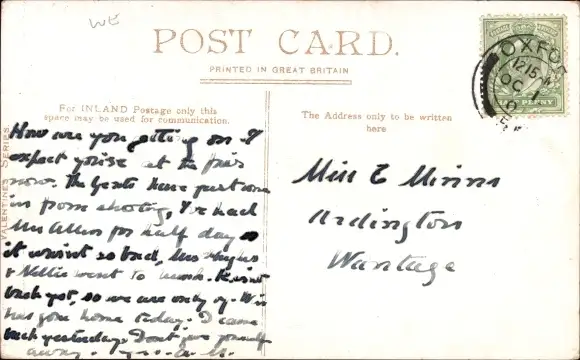 WE
POST CARD.
PRINTED IN GREAT BRITAIN
For INLAND Postage only this
space may be used for communication.
The Address only to be written
here
VALENTINES SERIES
How are you getting on I
expect you're at the
now. The Gents have just come
in from shooting, had
Mrs for half day
it wasn't so bad, Mrs
& Nellie went to
back yet, so we are only
has gone home today. I came
back yesterday. Don't give yourself
away.
Miss E Minns
Ardington
Wantage
OXFO
12.15
OC 1